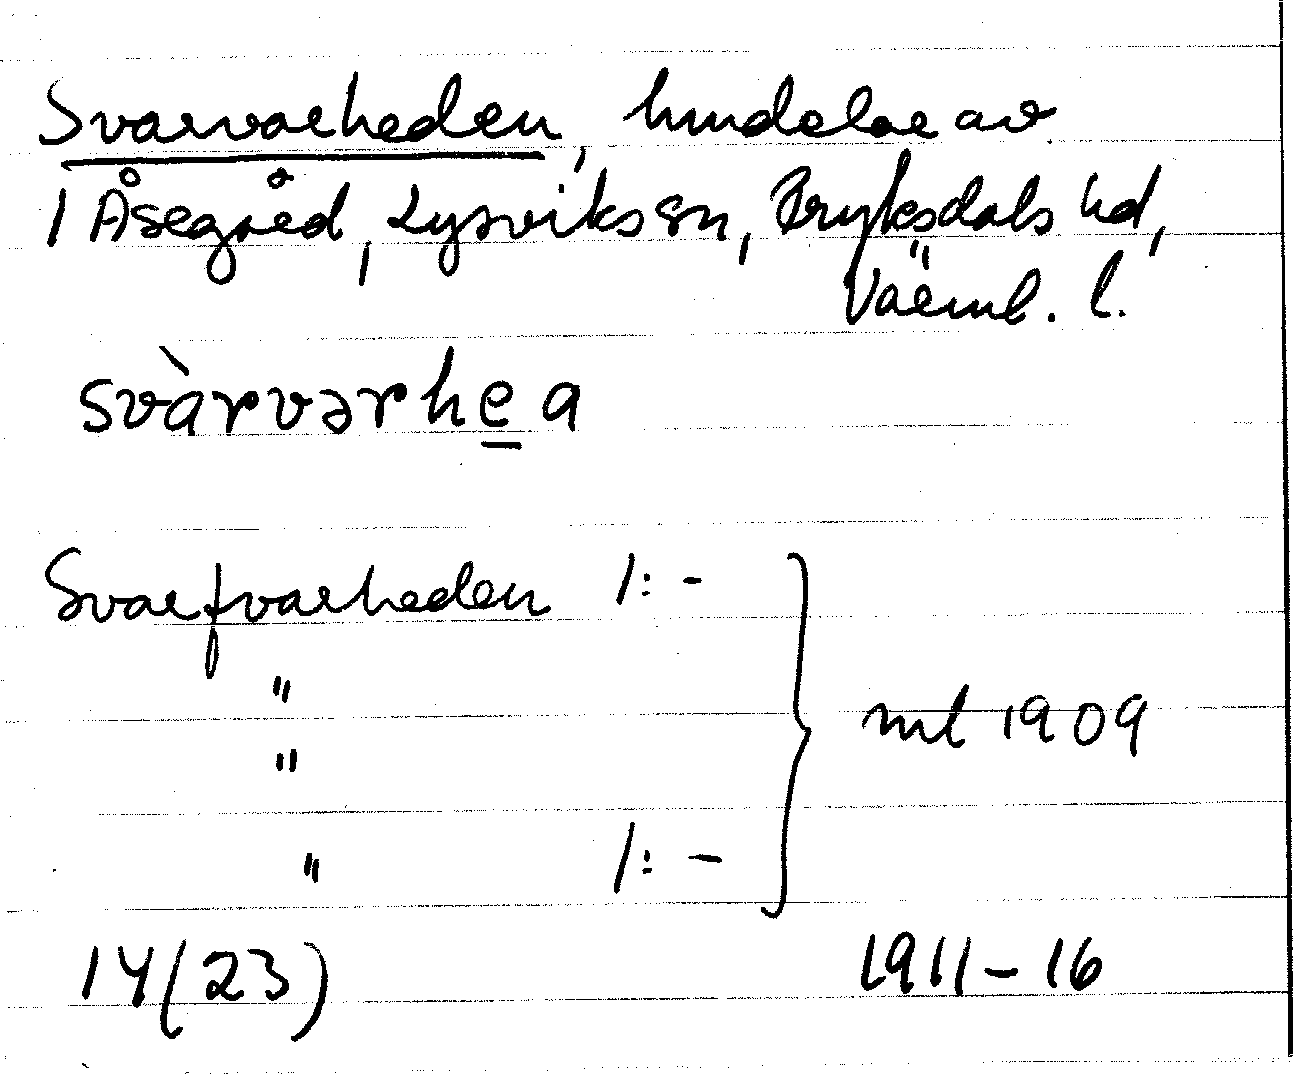 Svarvarheden, hmdelar av
1 Åsegård, Lysviks sn, Fryksdals hd,
Värml. l.
svàrvərhe̲a
Svarfvarheden /: -
"
"
" /: -
ml 1909
14(23) 1911-16